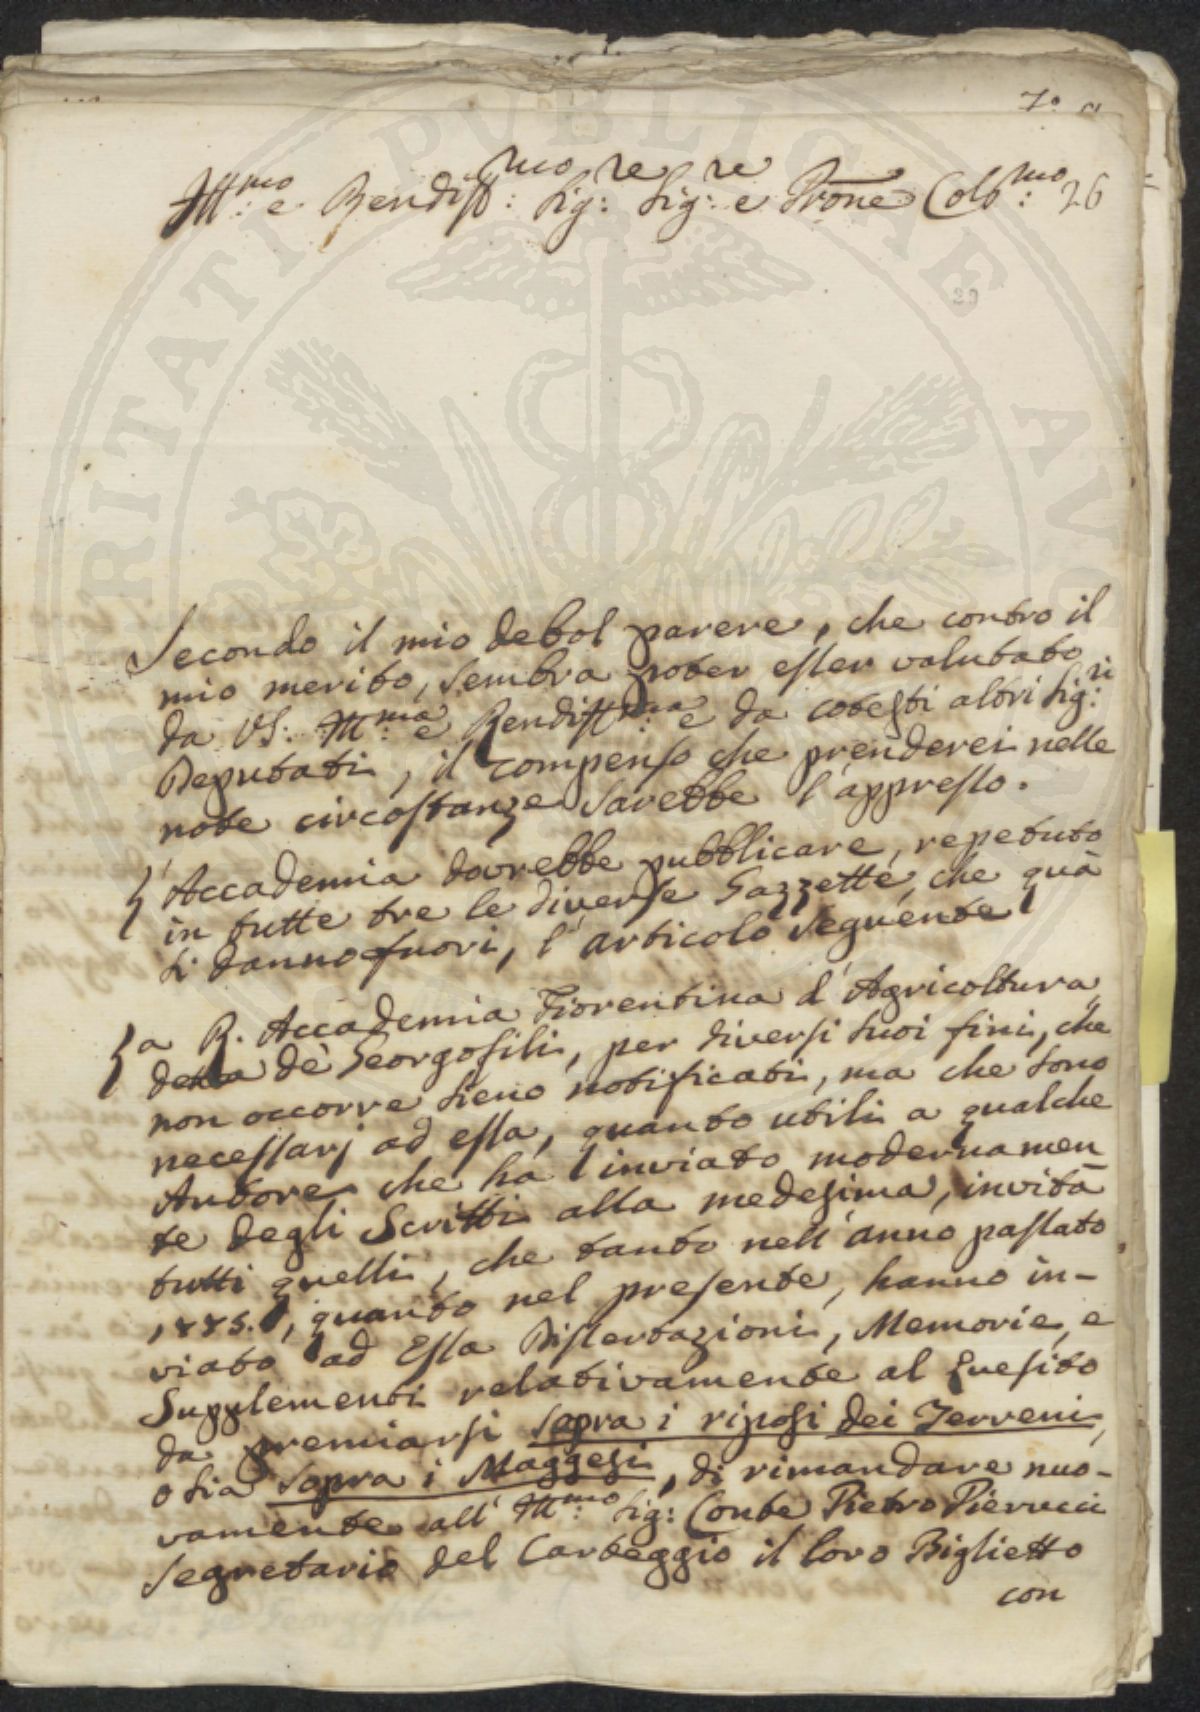 Ill:mo e Rendiss:mo Sig:re Sig:re e Prone Colo:mo 26
29
Secondo il mio debol parere, che contro il
mio merito, sembra poter esser valutato
da VS: Ill:ma e Rendiss:ma e da cotesti altri Sig:ri
Deputati, il compenso che prenderei nelle
note circostanze sarebbe l'appresso.
L'Accademia dovrebbe pubblicare, repetuto
in tutte tre le diverse Gazzette, che quà
si danno fuori, l'articolo seguente
La R. Accademia Fiorentina d'Agricoltura
detta dè Georgofili, per diversi suoi fini, che
non occorre sieno notificati, ma che sono
necessarj ad essa, quanto utili a qualche
Autore che ha inviato modernamen
te degli Scritti alla medesima, invita
tutti quelli, che tanto nell'anno passato
1785., quanto nel presente, hanno in-
viato ad Essa Dissertazioni, Memorie, e
Supplementi relativamente al Quesito
da premiarsi sopra i riposi dei Terreni,
o sia sopra i Maggesi, di rimandare nuo-
vamente all'Ill:mo Sig: Conte Pietro Pierucci
Segretario del Carteggio il loro Biglietto
con